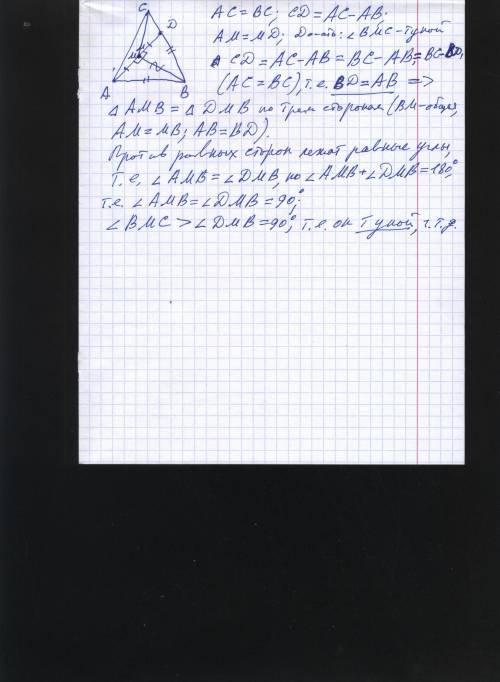 C
D
M
A
B
AC=BC; CD=AC-AB;
AM=MD; Док-ть: ∠BMC-тупой
CD=AC-AB=BC-AB;=BC-BD,
(AC=BC), т.е. BD=AB =>
△AMB=△DMB по трем сторонам (BM-общая,
AM=MB; AB=BD).
Против равных сторон лежат равные углы,
т.е, ∠AMB=∠DMB, но ∠AMB+∠DMB=180°,
т.е. ∠AMB=∠DMB=90°;
∠BMC>∠DMB=90°, т.е. он тупой, ч.т.д.